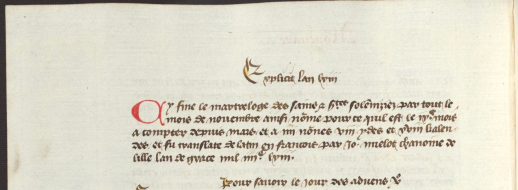 Explicit lan lviii
Cy fine le martreloge des sains & fstes solempnez par tout le
mois de novembre ainsi nome pource quil est le ixe mois
a compter depuis mars et a iiii nones viii ydes et xviii kalen
des et fu translate de latin en francois par Jo. mielot chanoine de
lille lan de grace mil iiiic lviii.
Pour savoir le jour des advens